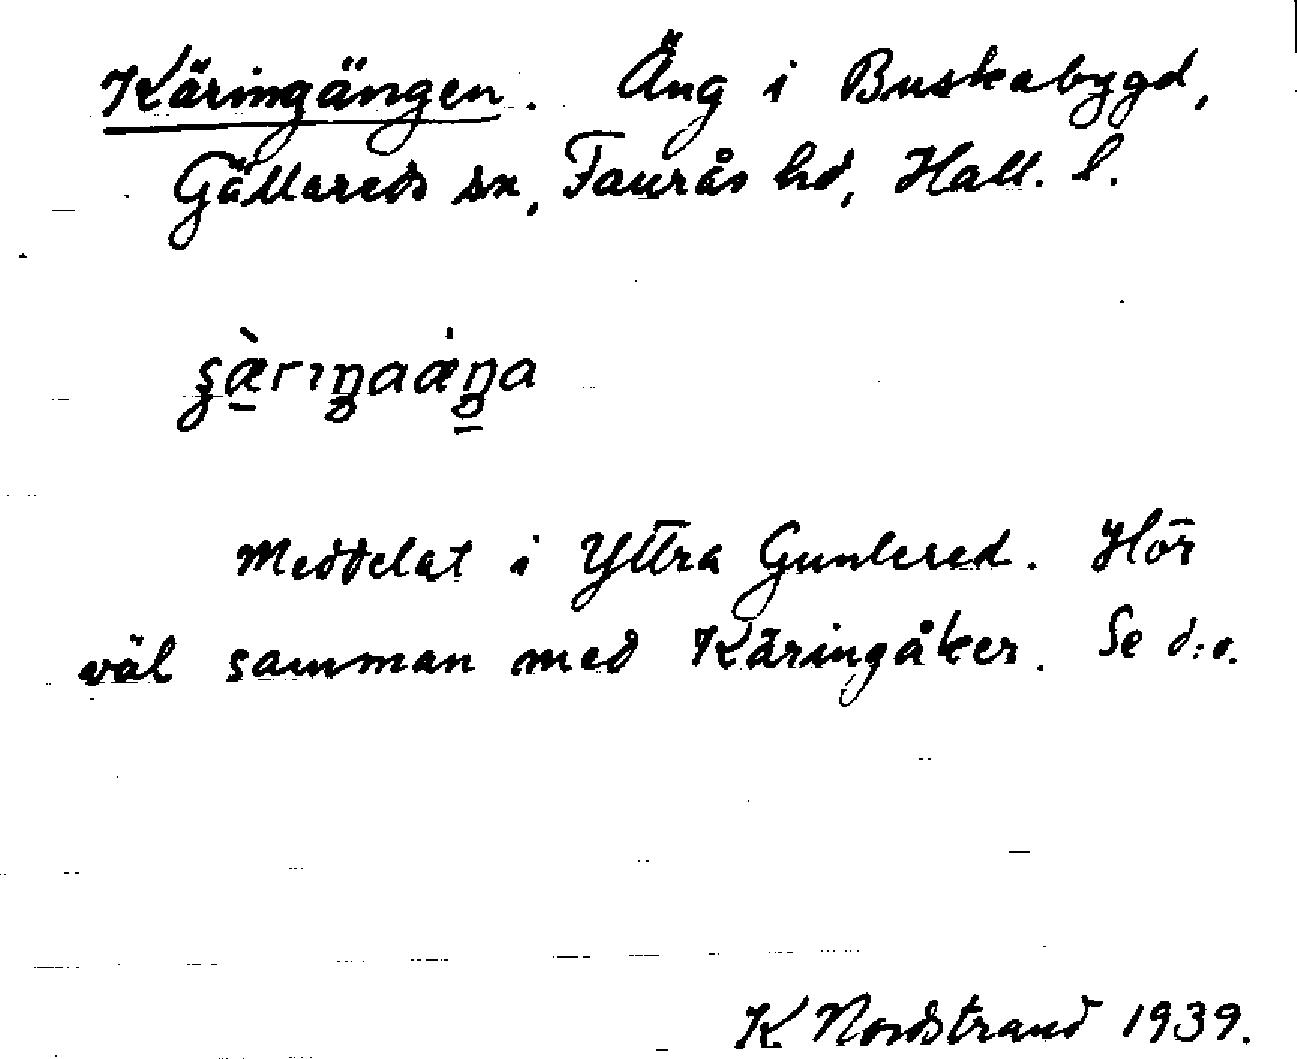 Käringängen. Äng i Buskabygd,
Gällareds sn, Faurås hd, Hall. l.
Meddelat i Yttra Gunlered. Hör
väl samman med Käringåker. Se d:o.
K Nordstrand 1939.